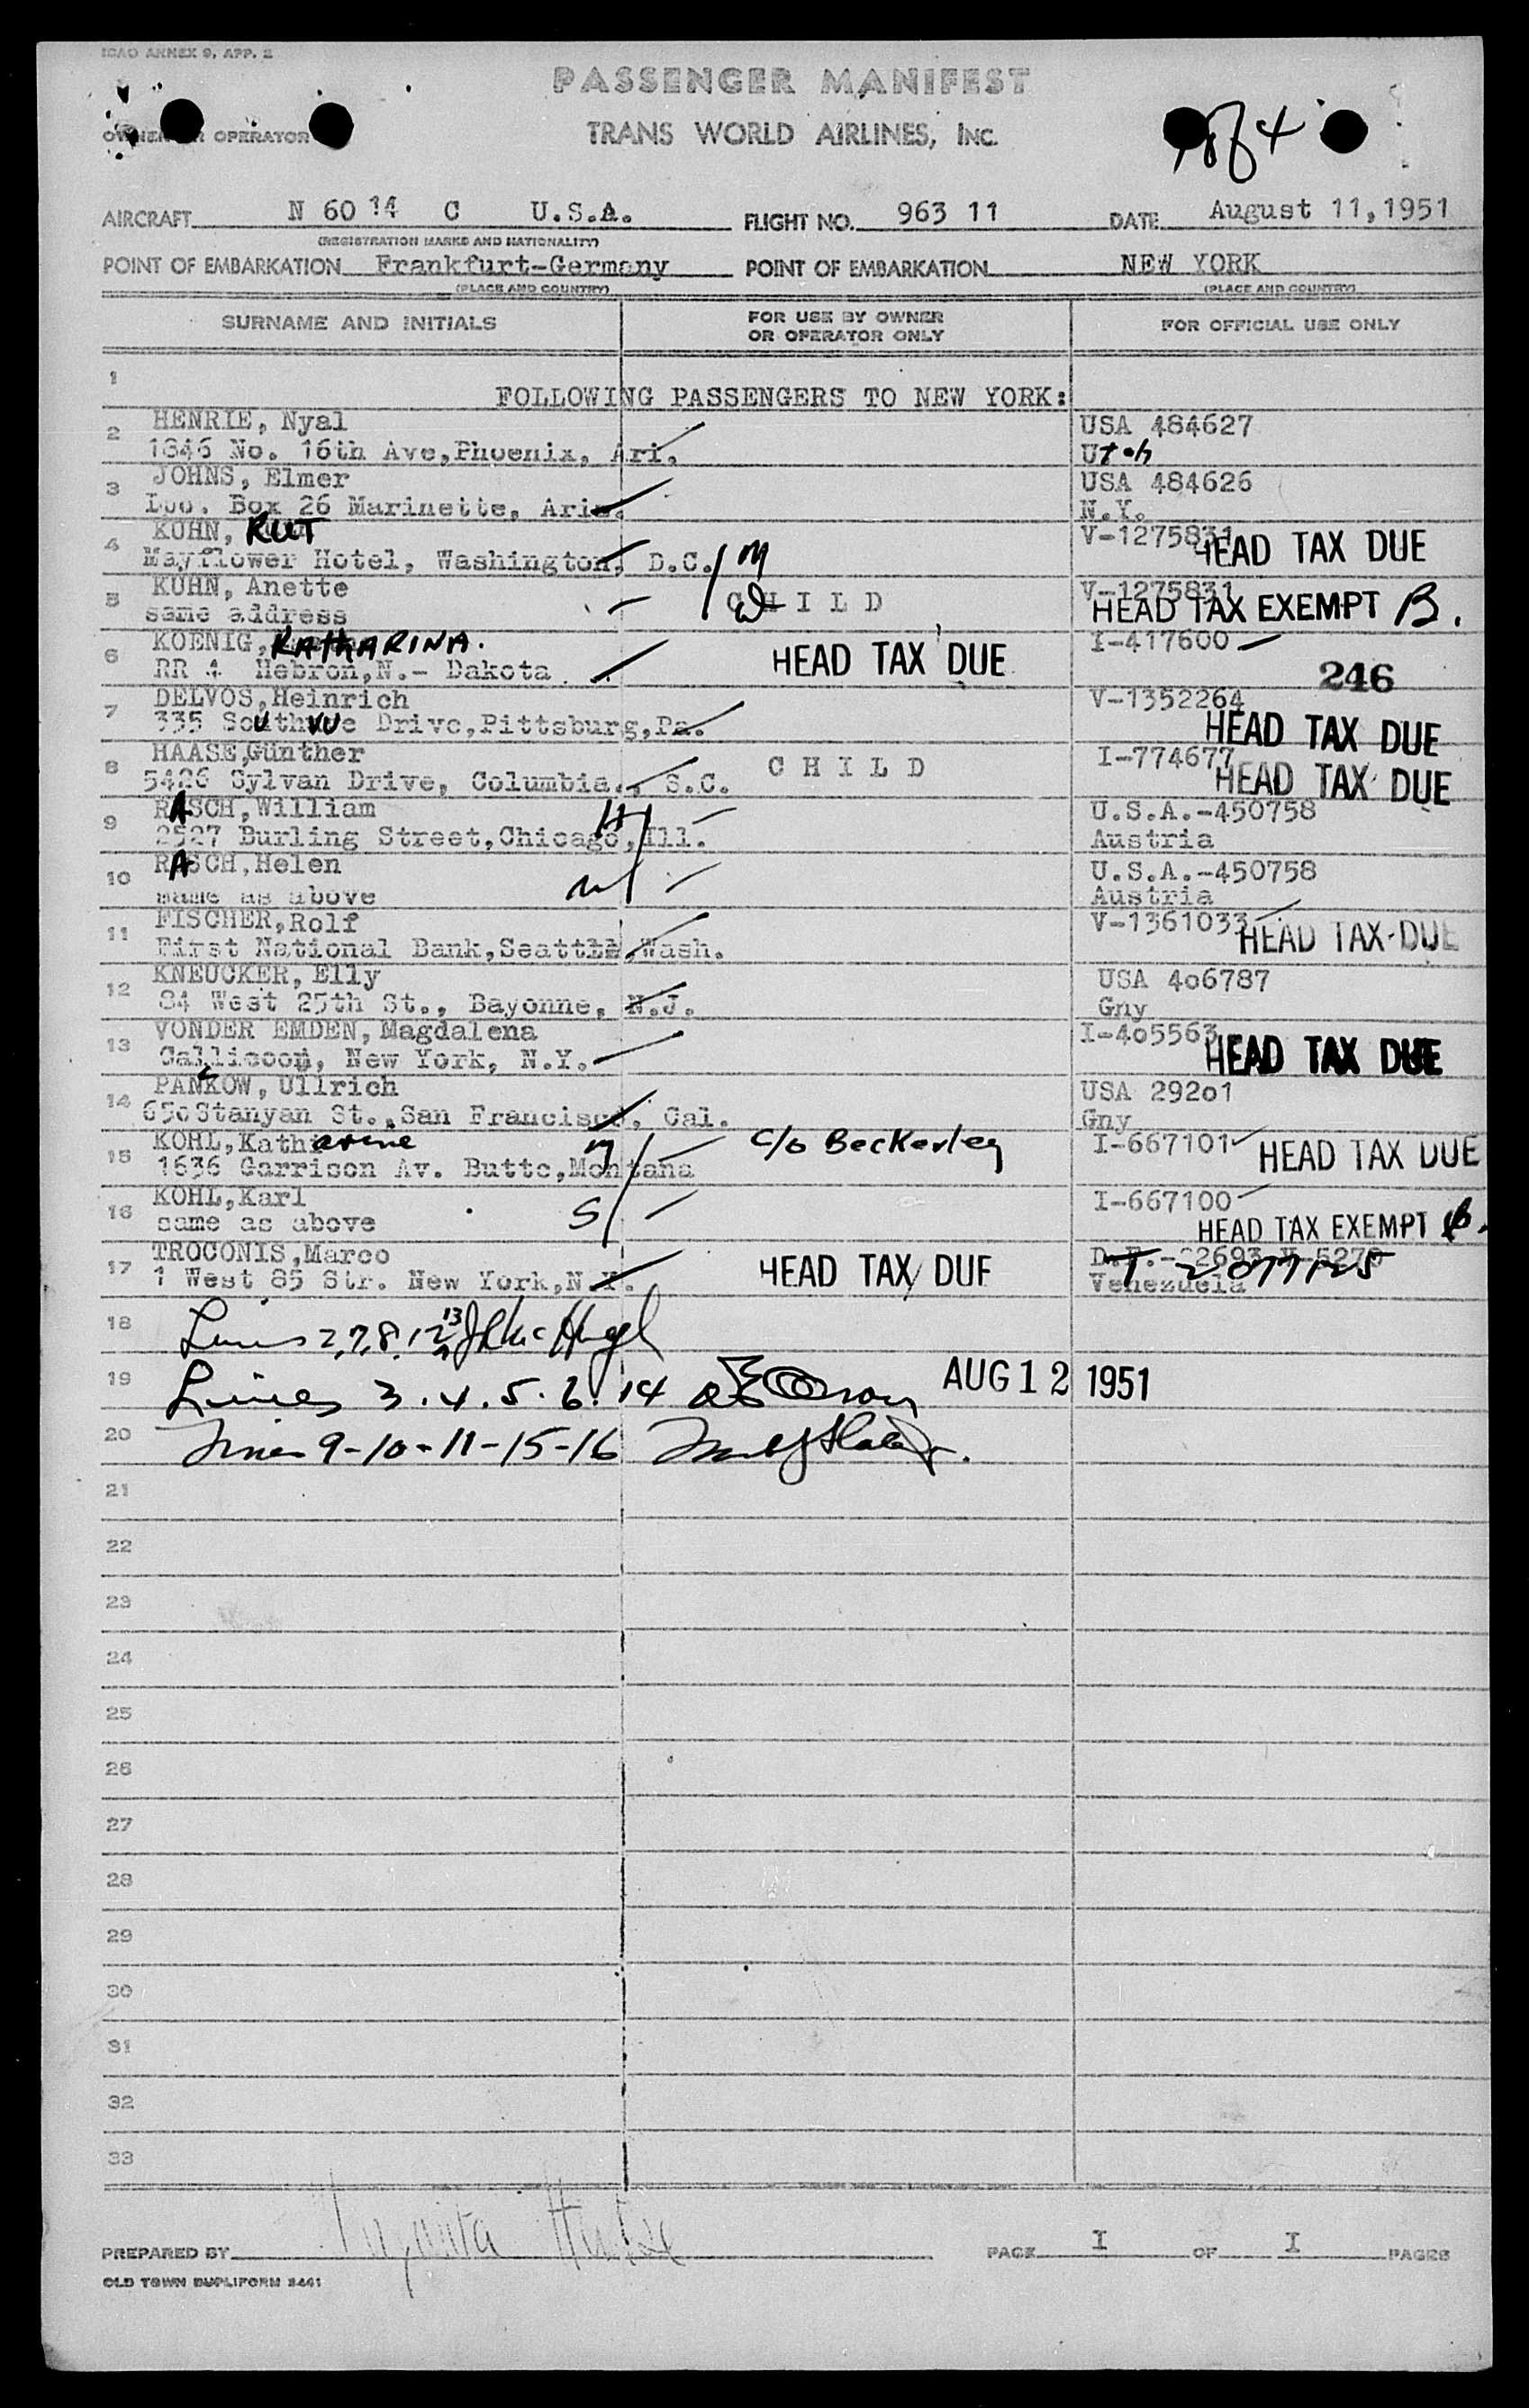 ICAO ANNEX 9, APP. 2
PASSENGER MANIFEST
OWNER OR OPERATOR TRANS WORLD AIRLINES, INC. of 4
AIRCRAFT N 6014 C U.S.A. FLIGHT NO. 963 11 DATE August 11,1951
(REGISTRATION MARKS AND NATIONALITY)
POINT OF EMBARKATION Frankfurt-Germany POINT OF EMBARKATION NEW YORK
(PLACE AND COUNTRY) (PLACE AND COUNTRY)
SURNAME AND INITIALS FOR USE BY OWNER OR OPERATOR ONLY FOR OFFICIAL USE ONLY
1
FOLLOWING PASSENGERS TO NEW YORK:
2 HENRIE, Nyal USA 484627
1846 No. 16th Ave,Phoenix, Ari. Utah
3 JOHNS, Elmer USA 484626
Box 26 Marinette, Ariz. N.Y.
4 KUHN, RUT V-1275831 HEAD TAX DUE
Mayflower Hotel, Washington, D.C. M
5 KUHN, Anette CHILD V-1275831
same address D HEAD TAX EXEMPT B.
6 KOENIG, KATHARINA. HEAD TAX DUE I-417600
RR 4 Hebron,N.- Dakota 246
7 DELVOS,Heinrich V-1352264
335 Southvue Drive,Pittsburg,Pa. HEAD TAX DUE
8 HAASE,Günther CHILD I-774677
5426 Sylvan Drive, Columbia., S.C. HEAD TAX DUE
9 RASCH,William H U.S.A.-450758
2527 Burling Street,Chicago,Ill. Austria
10 RASCH,Helen W U.S.A.-450758
same as above Austria
11 FISCHER,Rolf V-1361033
First National Bank,Seattle,Wash. HEAD TAX DUE
12 KNEUCKER, Elly USA 4o6787
84 West 25th St., Bayonne, N.J. Gny
13 VONDER EMDEN, Magdalena I-4o5563
Callicoon, New York, N.Y. HEAD TAX DUE
14 PANKOW, Ullrich USA 292o1
65o Stanyan St.,San Francisco, Cal. Gny
15 KOHL,Katharine M c/o Beckerley I-667101
1636 Garrison Av. Butte,Montana HEAD TAX DUE
16 KOHL,Karl S I-667100
same as above HEAD TAX EXEMPT B.
17 TROCONIS,Marco HEAD TAX DUE
1 West 85 Str. New York,N.Y. Venezuela
18 Lines 2,7,8,12,13
19 Lines 3.4.5.6.14 AUG 12 1951
20 Lines 9-10-11-15-16
21
22
23
24
25
26
27
28
29
30
31
32
33
PREPARED BY PAGE I OF I PAGES
OLD TOWN DUPLIFORM 2461